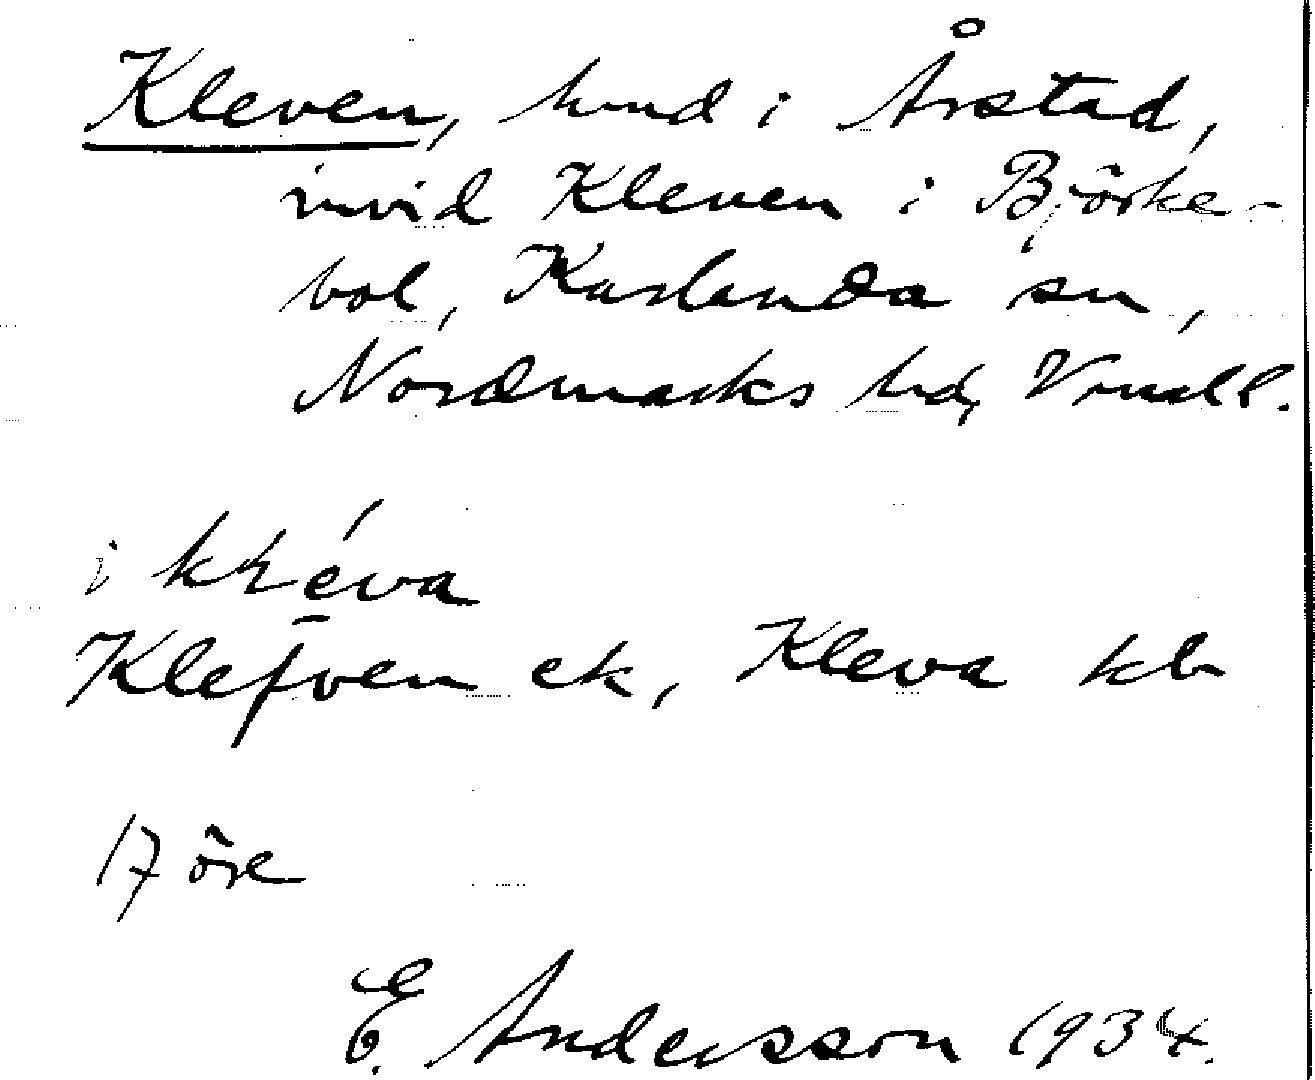 Kleven, hmd i Årstad,
invid Kleven i Björke-
bol, Karlanda sn,
Nordmarks hd, Vrml.
i kléva
Klefven ek, Kleva kb
17 öre
E. Andersson 1934.